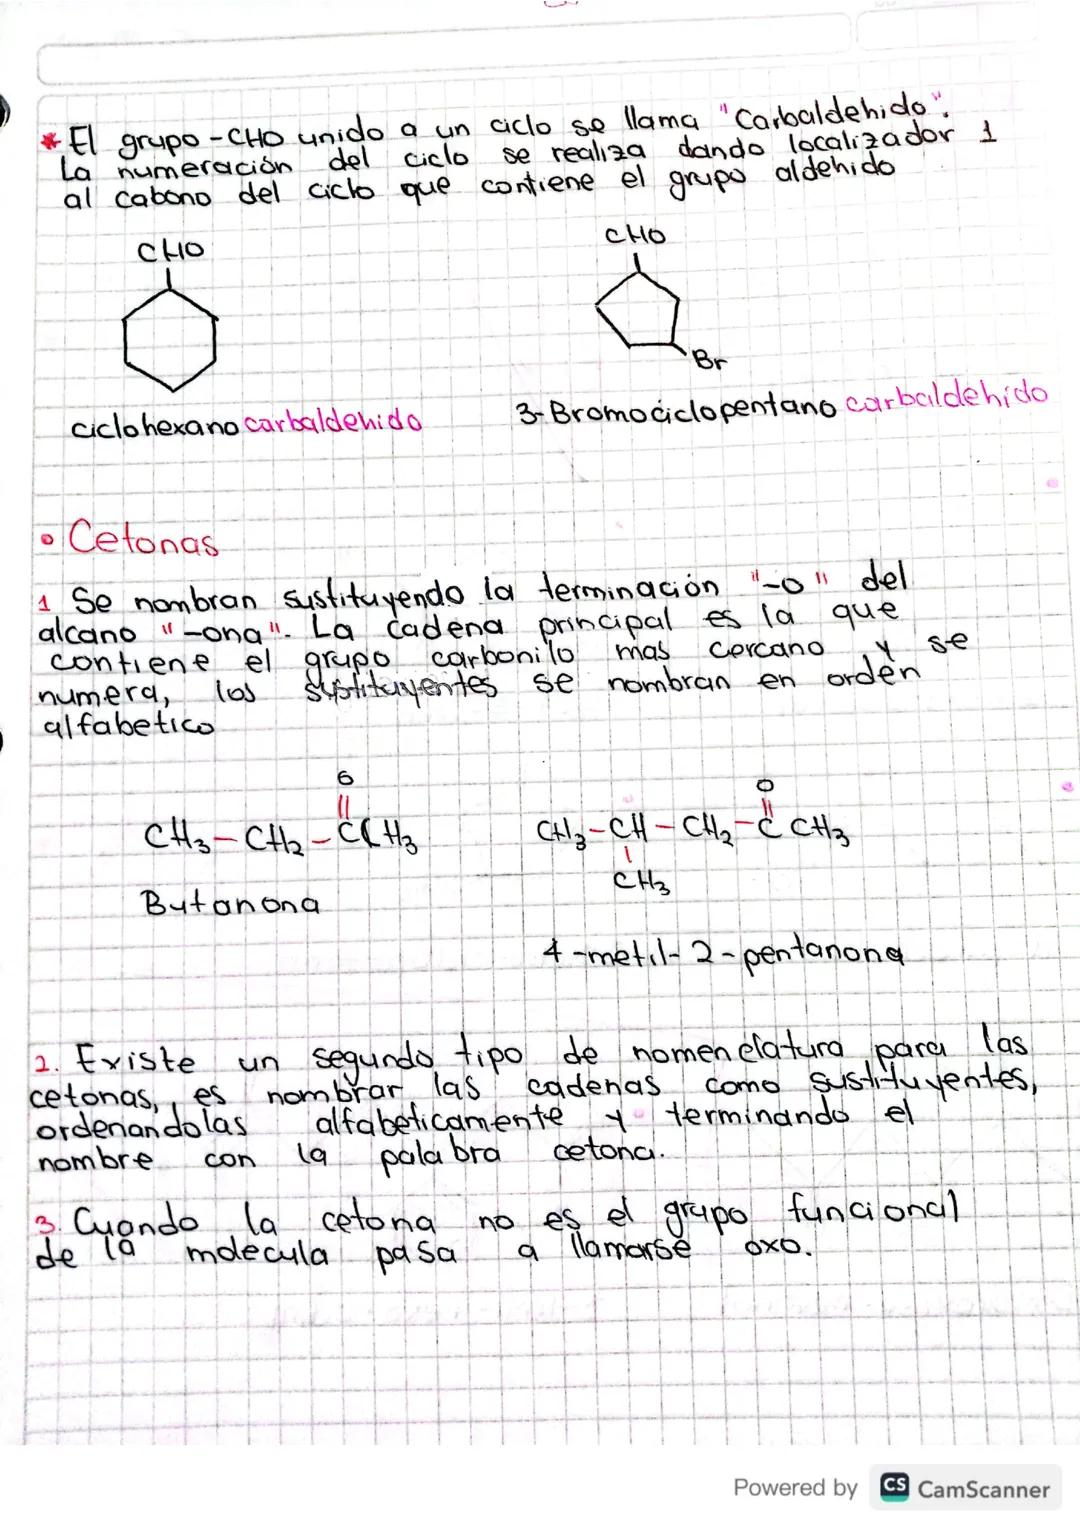 * El grupo -CHO unido a un ciclo se llama "Carbaldehido".
La numeración del ciclo se realiza dando localizador 1
al cabono del ciclo que contiene el grupo aldehido
CHO
CHO
Br
ciclohexano carbaldehido
3-Bromociclopentano carbaldehido
• Cetonas
1 Se nombran sustituyendo la terminación "-o" del
alcano "-ona". La cadena principal es la que
contiene el grupo carbonilo mas cercano y se
numera, los sustituyentes se nombran en orden
alfabetico
O
||
CH3-CH2-CCH3
O
||
CH3-CH-CH2-C CH3
|
CH3
Butanona
4-metil-2-pentanona
2. Existe un segundo tipo de nomenclatura para las
cetonas, es nombrar las cadenas como sustituyentes,
ordenandolas alfabeticamente y terminando el
nombre con la palabra cetona.
3. Cuando la cetona no es el grupo funcional
de la molecula pasa a llamarse oxo.
Powered by CS CamScanner